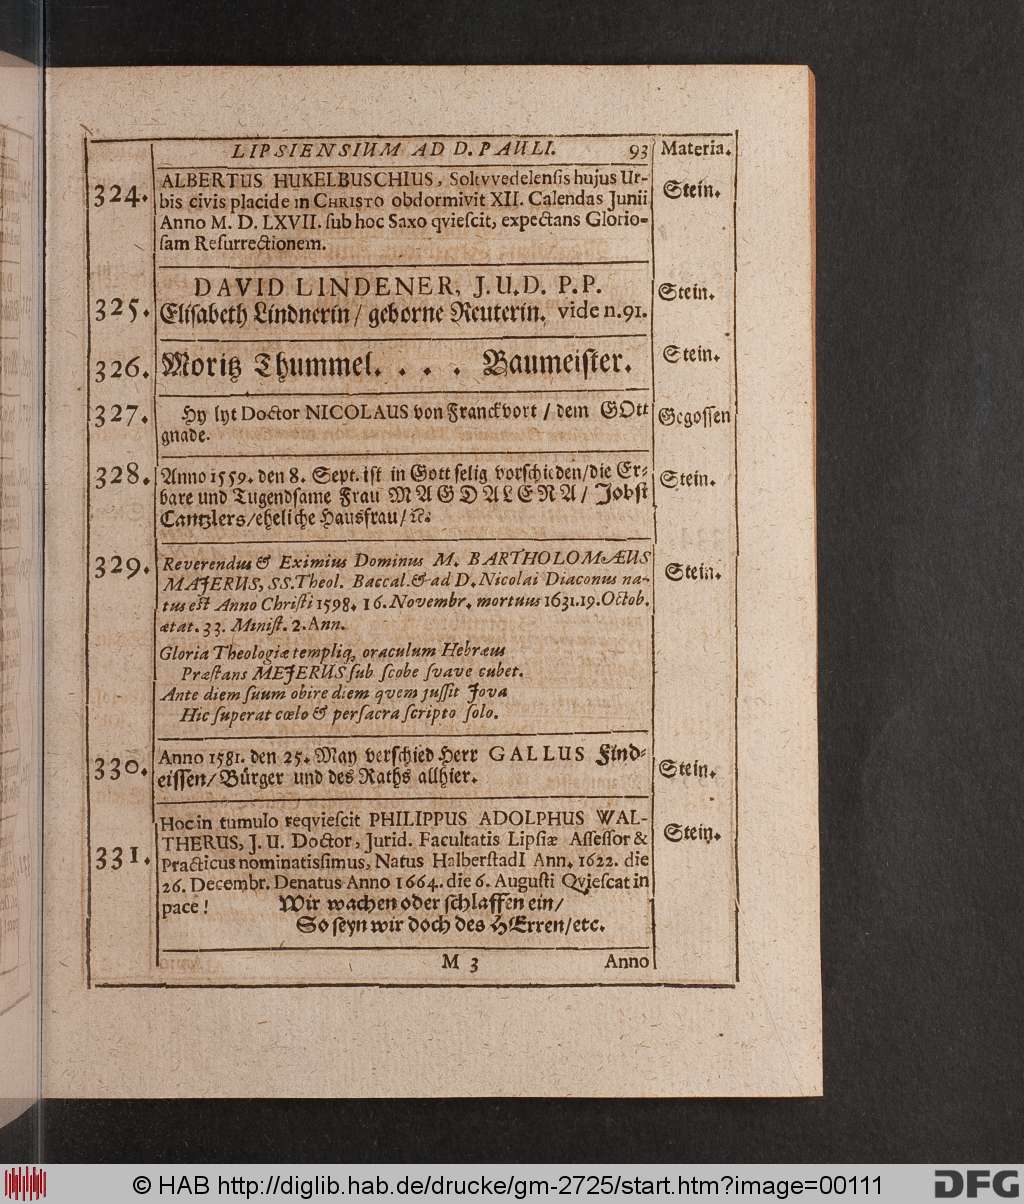 LIPSIENSIUM AD D. PAULI. 93 Materia.
324. ALBERTUS HUKELBUSCHIUS, Soltvvedelenſis hujus Ur- Stein.
bis civis placide in CHRISTO obdormivit XII. Calendas Junii
Anno M. D. LXVII. ſub hoc Saxo qvieſcit, expectans Glorio-
ſam Reſurrectionem.
DAVID LINDENER, J.U.D. P.P.
325. Eliſabeth Lindnerin / geborne Reuterin. vide n.91. Stein.
326. Moritz Thummel. . . . Baumeiſter. Stein.
327. Hy lyt Doctor NICOLAUS von Franckvort / dem GOtt Gegoſſen
gnade.
328. Anno 1559. den 8. Sept. iſt in Gott ſelig vorſchieden/die Er- Stein.
bare und Tugendſame Frau MAGDALENA / Jobſt
Cantzlers/eheliche Hausfrau/ꝛc.
329. Reverendus & Eximius Dominus M. BARTHOLOMÆUS Stein.
MAJERUS, SS.Theol. Baccal.& ad D. Nicolai Diaconus na-
tus eſt Anno Chriſti 1598. 16. Novembr. mortuus 1631.19. Octob.
ætat. 33. Miniſt. 2. Ann.
Gloria Theologiæ templiq, oraculum Hebræus
Præſtans MEJERUS ſub ſcobe ſvave cubet.
Ante diem ſuum obire diem qvem juſſit Jova
Hic ſuperat cœlo & perſacra ſcripto ſolo.
330. Anno 1581. den 25. May verſchied Herr GALLUS Find- Stein.
eiſſen/Bürger und des Raths allhier.
331. Hoc in tumulo reqvieſcit PHILIPPUS ADOLPHUS WAL- Stein.
THERUS, J. U. Doctor, Jurid. Facultatis Lipſiæ Aſſeſſor &
Practicus nominatiſſimus, Natus HalberſtadI Ann. 1622. die
26. Decembr. Denatus Anno 1664. die 6. Auguſti Qvieſcat in
pace! Wir wachen oder ſchlaffen ein/
So ſeyn wir doch des HErren/etc.
M 3 Anno
© HAB http://diglib.hab.de/drucke/gm-2725/start.htm?image=00111
DFG